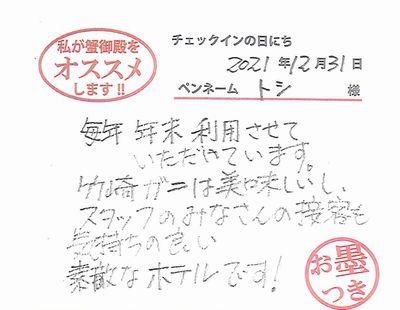 私が蟹御殿を
オススメ
します!!
チェックインの日にち
2021年12月31日
ペンネーム トシ 様
毎年 年末 利用させて
いただいています。
竹崎ガニは美味しいし、
スタッフのみなさんの接客も
気持ちの良い
素敵なホテルです!
お墨
つき